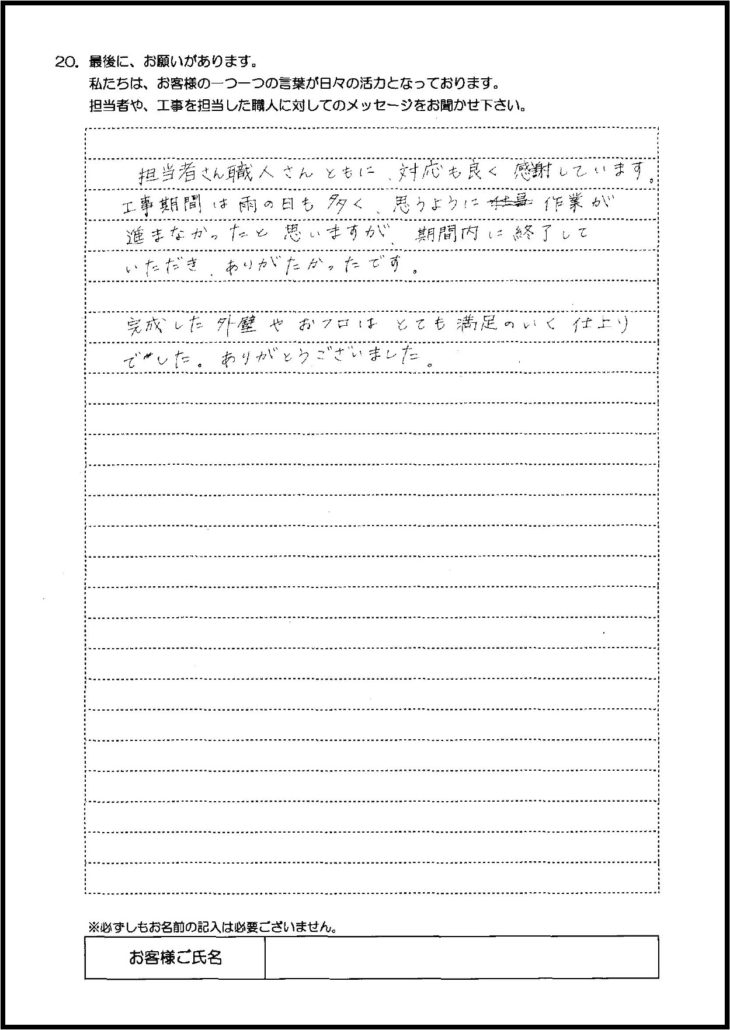 20. 最後に、お願いがあります。
私たちは、お客様の一つ一つの言葉が日々の活力となっております。
担当者や、工事を担当した職人に対してのメッセージをお聞かせ下さい。
担当者さん職人さんともに、対応も良く感謝しています。
工事期間は雨の日も多く、思うように 作業が
進まなかったと思いますが、期間内に終了して
いただき、ありがたかったです。
完成した外壁やおフロはとても満足のいく仕上り
でした。ありがとうございました。
※必ずしもお名前の記入は必要ございません。
お客様ご氏名